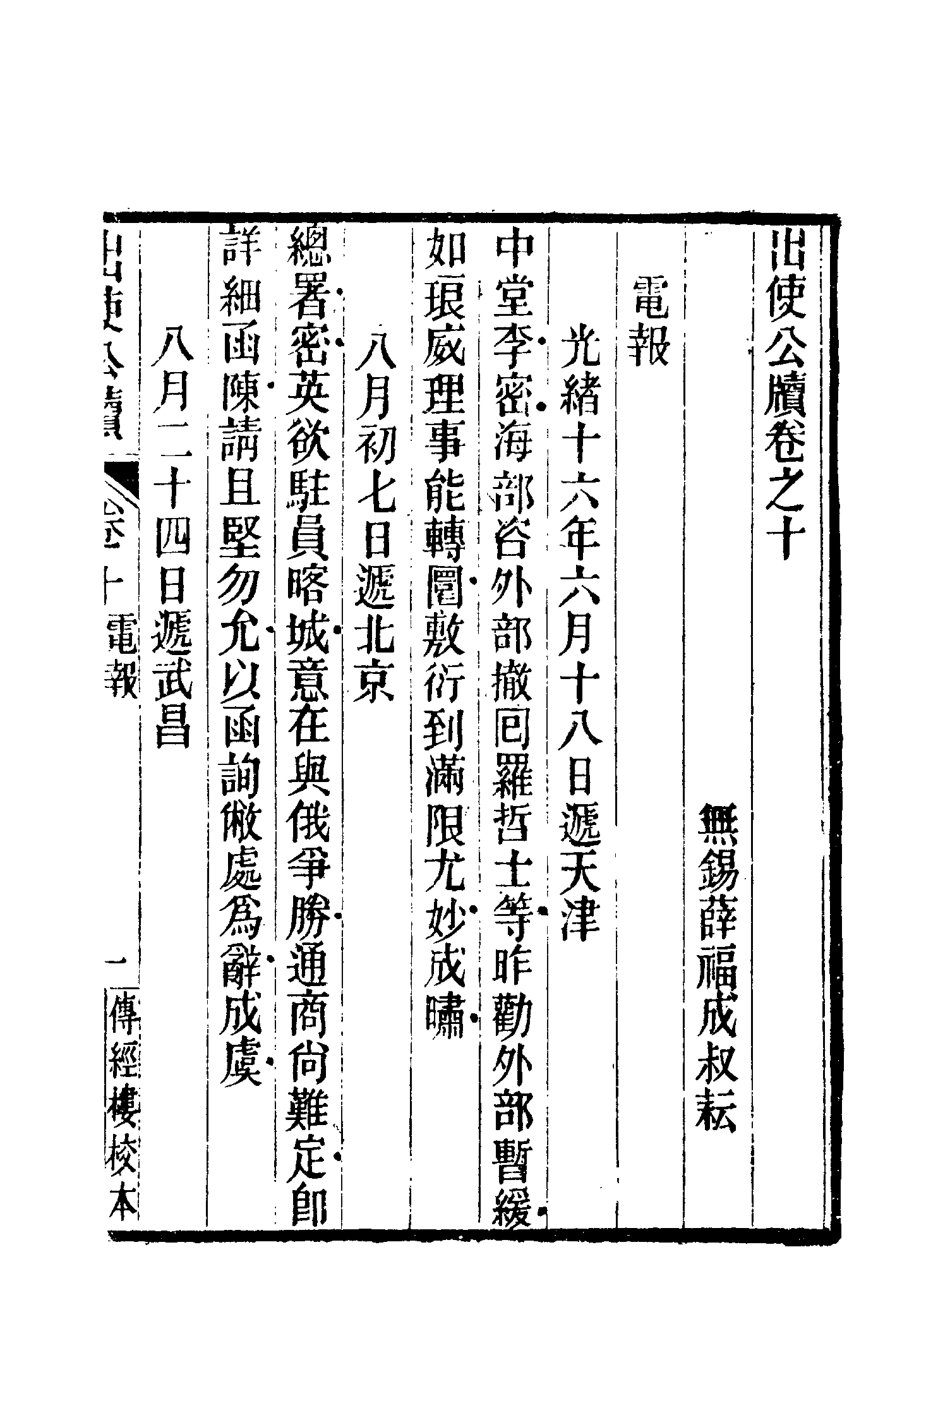 出使公牘卷之十
無錫薛福成叔耘
電報
光緒十六年六月十八日遞天津
中堂李密海部咨外部撤回羅哲士等昨勸外部暫緩
如琅威理事能轉圜敷衍到滿限尤妙成嘯
八月初七日遞北京
總署密英欲駐員喀城意在與俄爭勝通商尙難定卽
詳細函陳請且堅勿允以函詢僘處爲辭成虞
八月二十四日遞武昌
出使公牘 卷十電報 一 傳經樓校本